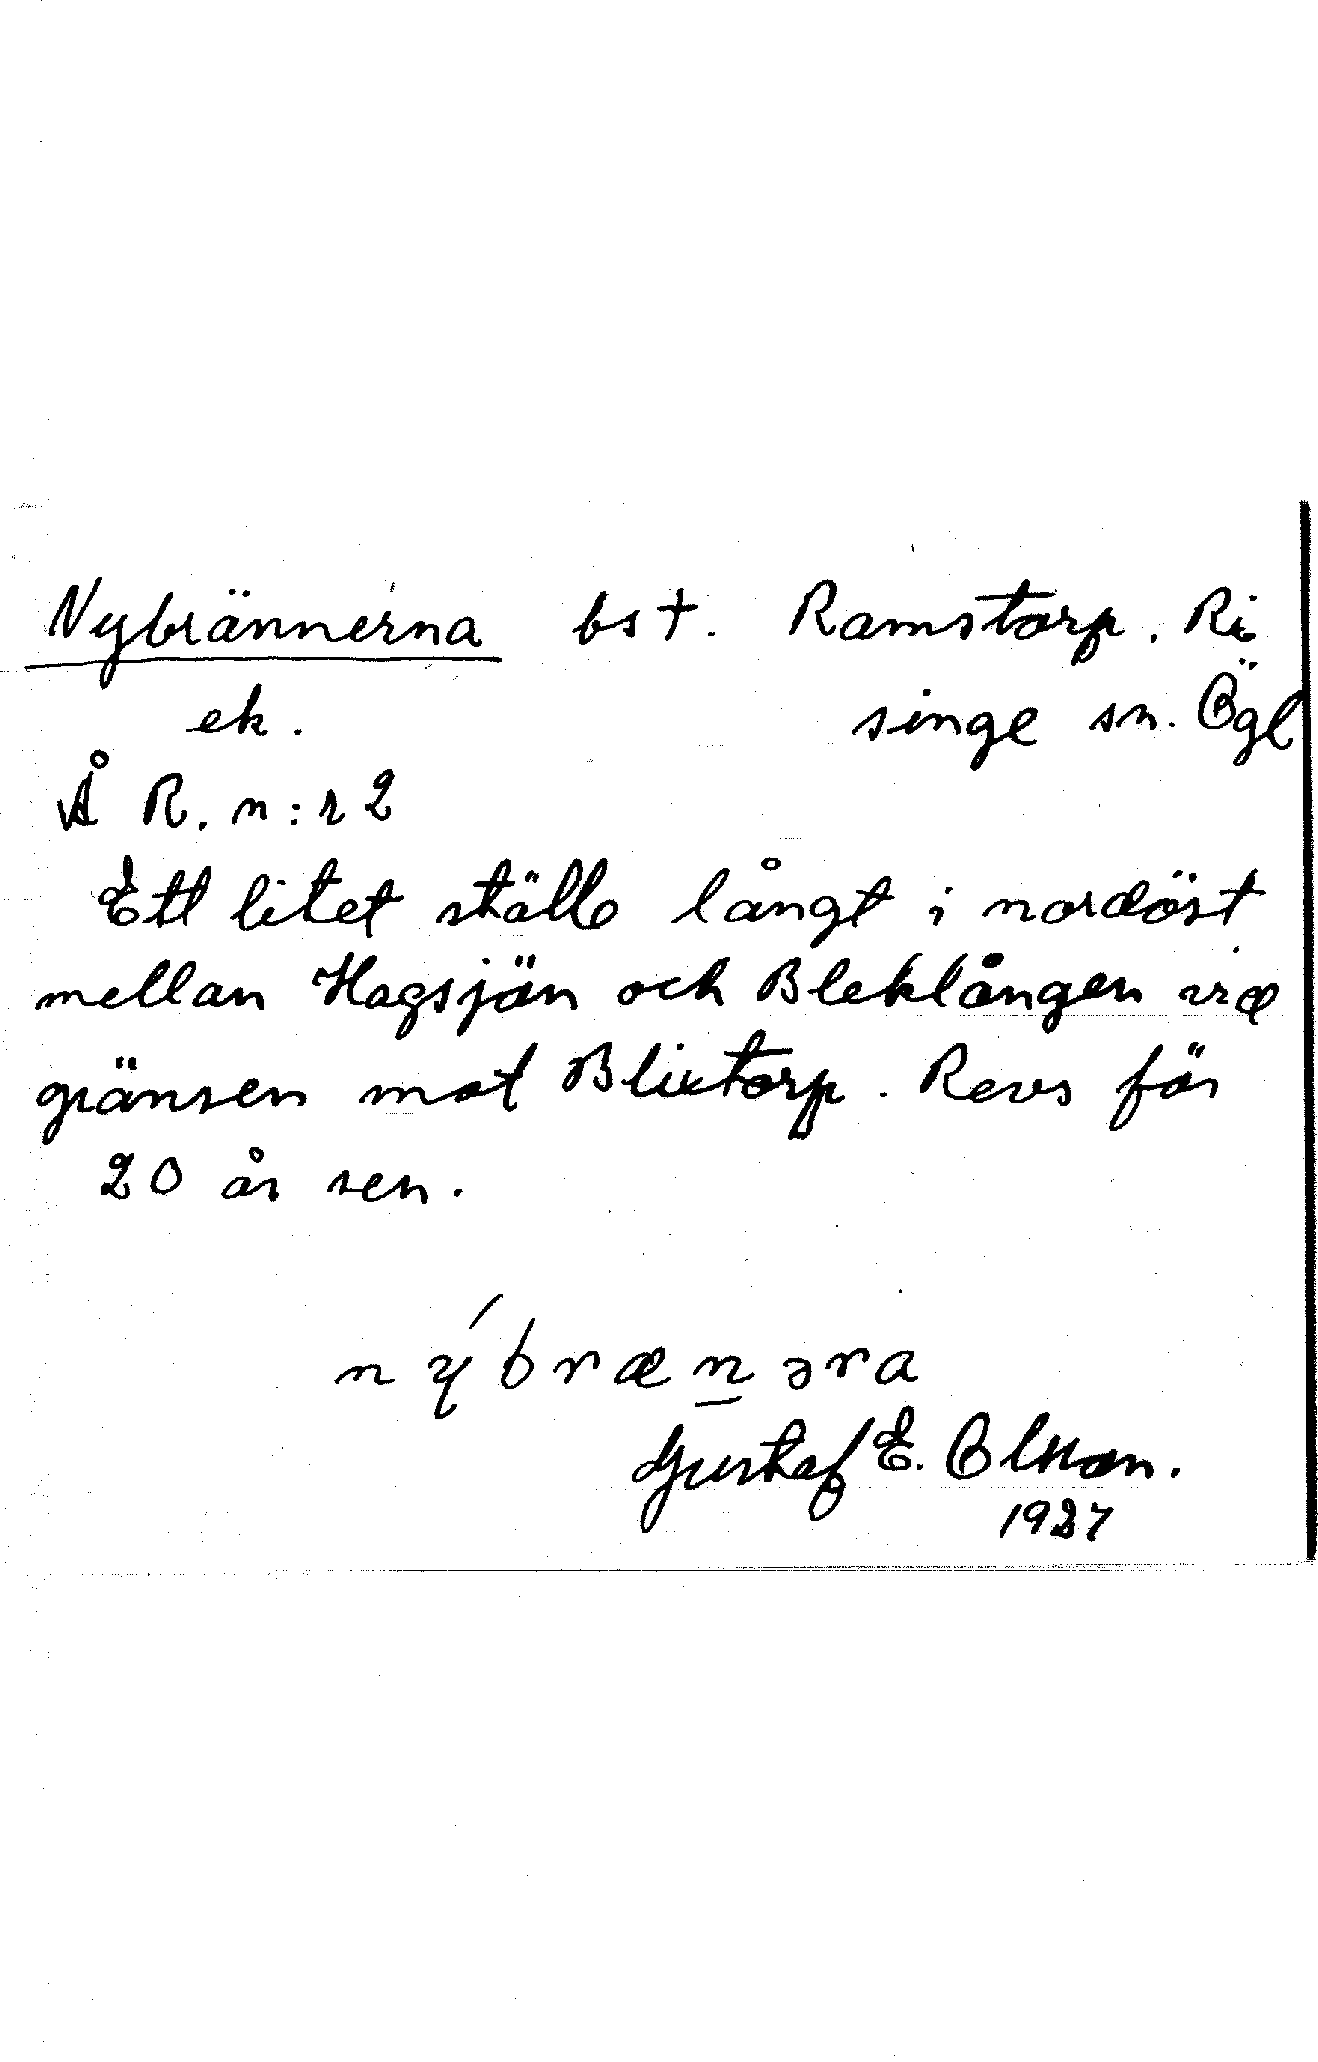 Nybrännerna bst. Ramstorp. Ri
ek. singe sn. Ögl
Å R. n:r 2
Ett litet ställe långt i nordöst
mellan Hagsjön och Bleklången vid
gränsen mot Blixtorp. Revs för
20 år sen.
nýbrænəra
Gustaf E. Olsson.
1937